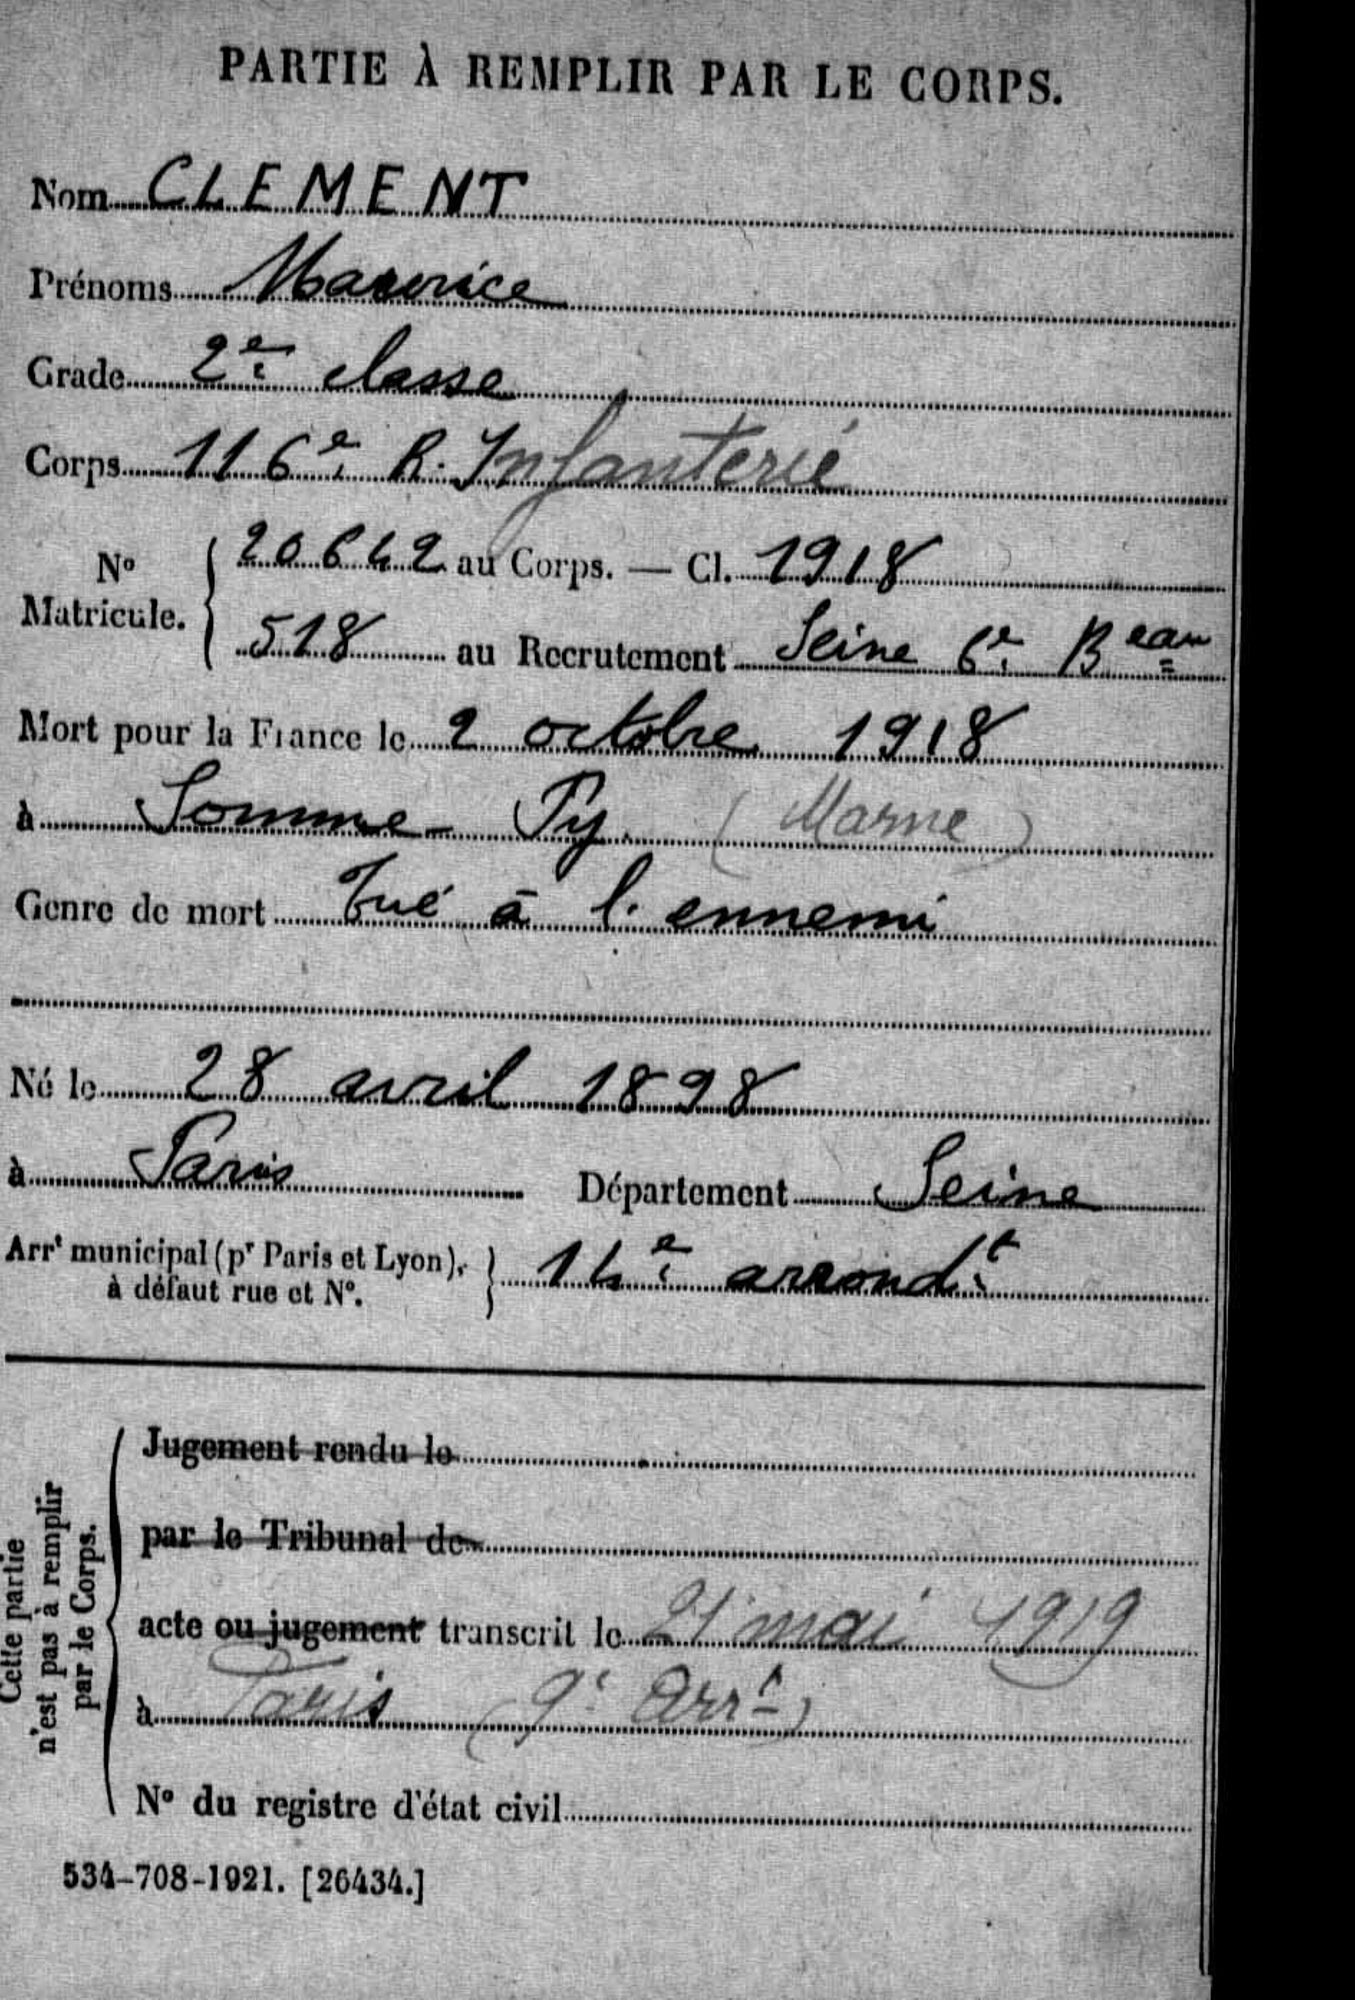 PARTIE À REMPLIR PAR LE CORPS.
Nom CLEMENT
Prénoms Maurice
Grade 2e classe
Corps 116e R. Infanterie
No Matricule. 20642 au Corps. — Cl. 1918
518 au Recrutement Seine 6e Beau
Mort pour la France le 2 octobre 1918
à Somme-Py (Marne)
Genre de mort Tué à l'ennemi
Né le 28 avril 1898
à Paris Département Seine
Arrt municipal (pr Paris et Lyon), 14e arrondt
à défaut rue et No.
Cette partie
n'est pas à remplir
par le Corps.
Jugement rendu le
par le Tribunal de
acte ou jugement transcrit le 21 mai 1919
à Paris (9e Arrt)
No du registre d'état civil
534-708-1921. [26434.]